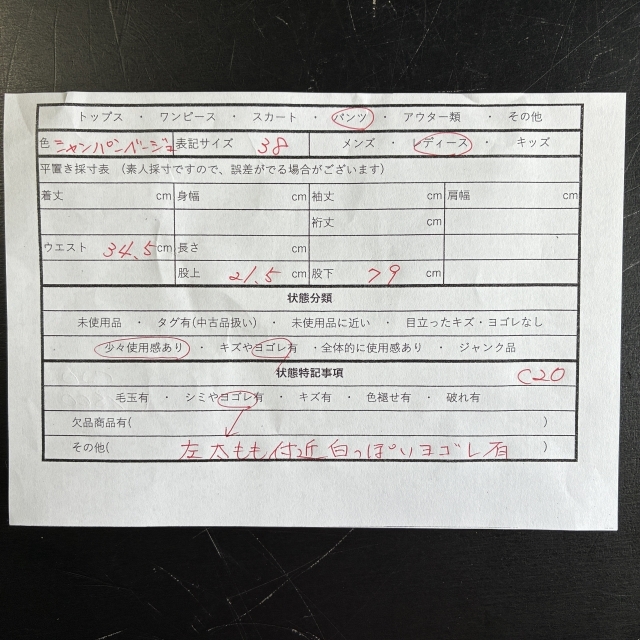 トップス ・ ワンピース ・ スカート ・ パンツ ・ アウター類 ・ その他
色 シャンパンベージュ 表記サイズ 38 メンズ ・ レディース ・ キッズ
平置き採寸表 (素人採寸ですので、誤差がでる場合がございます)
着丈 cm 身幅 cm 袖丈 cm 肩幅 cm
裄丈 cm
ウエスト 34.5cm 長さ cm
股上 21.5 cm 股下 79 cm
状態分類
未使用品 ・ タグ有(中古品扱い) ・ 未使用品に近い ・ 目立ったキズ・ヨゴレなし
少々使用感あり ・ キズやヨゴレ有 ・全体的に使用感あり ・ ジャンク品
状態特記事項 C20
毛玉有 ・ シミやヨゴレ有 ・ キズ有 ・ 色褪せ有 ・ 破れ有
欠品商品有( )
その他( 左太もも付近白っぽいヨゴレ有 )